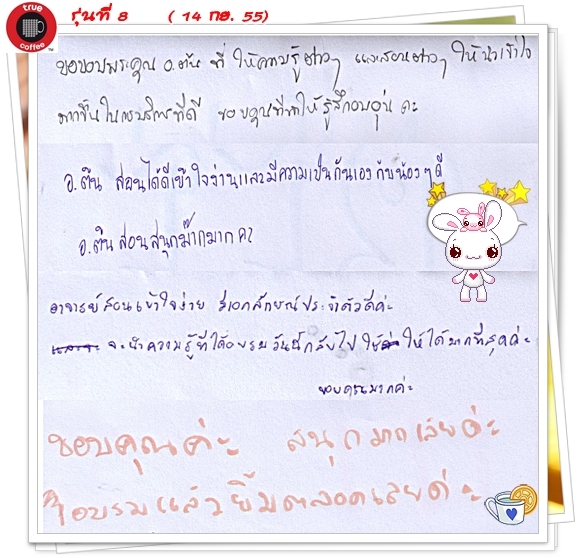 true coffee
รุ่นที่ 8 ( 14 กย. 55)
ขอขอบพระคุณ อ.ตัน ที่ ให้ความรู้ต่างๆ และสอนต่างๆ ให้น่าเข้าใจ
มากขึ้นในการบริการที่ดี ขอบคุณที่ทำให้รู้สึกอบอุ่น ค่ะ
อ.ตัน สอนได้ดีเข้าใจง่ายและมีความเป็นกันเอง กับน้องๆ ดี
อ.ตันสอนสนุกม๊ากมาก คะ
อาจารย์สอนเข้าใจง่าย มีเอกลักษณ์ประจำตัวดีค่ะ
จะนำความรู้ที่ได้อบรมวันนี้กลับไป ใช้ ให้ได้มากที่สุดค่ะ
ขอบคุณมากค่ะ
ขอบคุณค่ะ สนุกมากเลยค่ะ
อบรมแล้วยิ้มตลอดเลยค่ะ